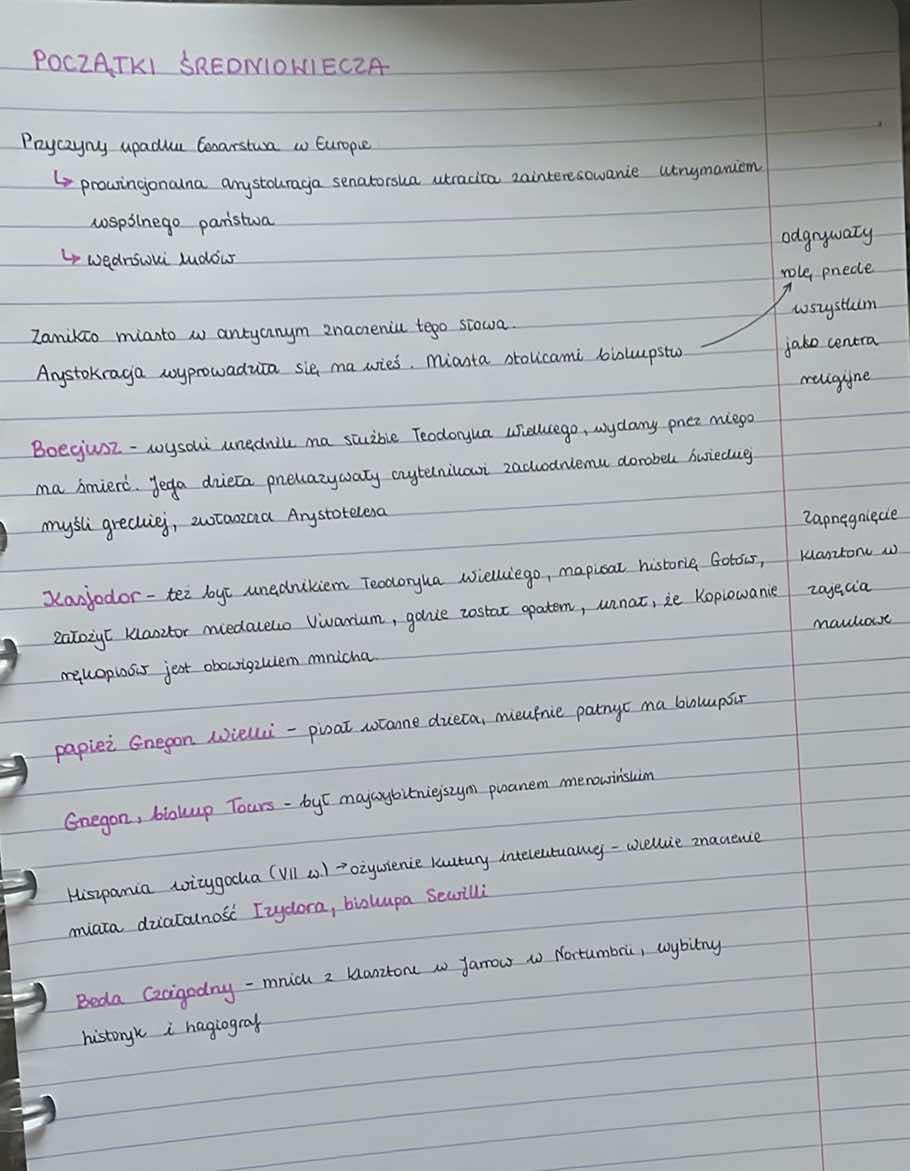 POCZĄTKI ŚREDNIOWIECZA
Przyczyny upadku Cesarstwa w Europie
↳ prowincjonalna arystokracja senatorska utraciła zainteresowanie utrzymaniem
wspólnego państwa
↳ wędrówki ludów
Zanikło miasto w antycznym znaczeniu tego słowa.
Arystokracja wyprowadziła się na wieś. Miasta stolicami biskupstw →
odgrywały
rolę przede
wszystkim
jako centra
religijne
Boecjusz - wysoki urzędnik na służbie Teodoryka Wielkiego, wydany przez niego
na śmierć. Jego dzieła przekazywały czytelnikowi zachodniemu dorobek świeckiej
myśli greckiej, zwłaszcza Arystotelesa
Kasjodor - też był urzędnikiem Teodoryka Wielkiego, napisał historię Gotów,
założył klasztor niedaleko Vivarium, gdzie został opatem, uznał, że kopiowanie
rękopisów jest obowiązkiem mnicha
zaprzęgnięcie
klasztoru w
zajęcia
naukowe
papież Grzegorz Wielki - pisał własne dzieła, nieufnie patrzył na biskupów
Grzegorz, biskup Tours - był najwybitniejszym pisarzem merowińskim
Hiszpania wizygocka (VII w.) → ożywienie kultury intelektualnej - wielkie znaczenie
miała działalność Izydora, biskupa Sewilli
Beda Czcigodny - mnich z klasztoru w Jarrow w Nortumbrii, wybitny
historyk i hagiograf